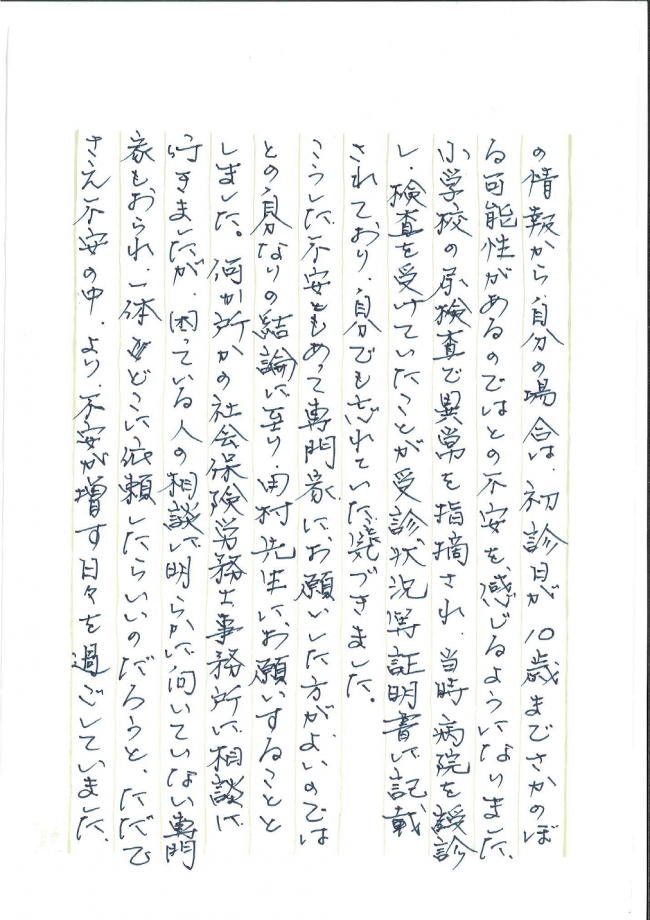 の情報から、自分の場合は、初診日が10歳までさかのぼ
る可能性があるのではとの不安を、感じるようになりました、
小学校の尿検査で異常を指摘され、当時病院を受診
し、検査を受けていたことが受診状況等証明書に記載
されており、自分でも忘れていた気づきました。
こうした不安ともあって専門家に、お願いした方がよいのでは
との自分なりの結論に至り、田村先生に、お願いすることと
しました。何か所かの社会保険労務士事務所に相談に
行きましたが、困っている人の相談に明らかに向いていない専門
家もおられ、一体どこに依頼したらいいのだろうと、ただで
さえ不安の中、より、不安が増す日々を過ごしていました、